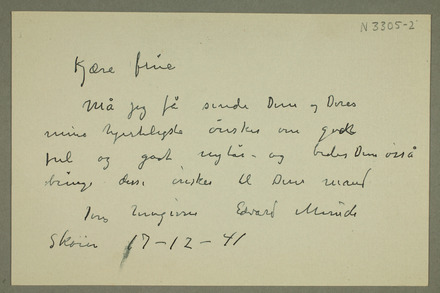 N 3305-2
Kjære frue
Må jeg få sende Dem og Deres
mine hjerteligste ønsker om godt
jul og godt nytår - og bedes Dem også
bringe disse ønsker til Deres mand
Deres hengivne Edvard Munch
Skøien 17-12-41